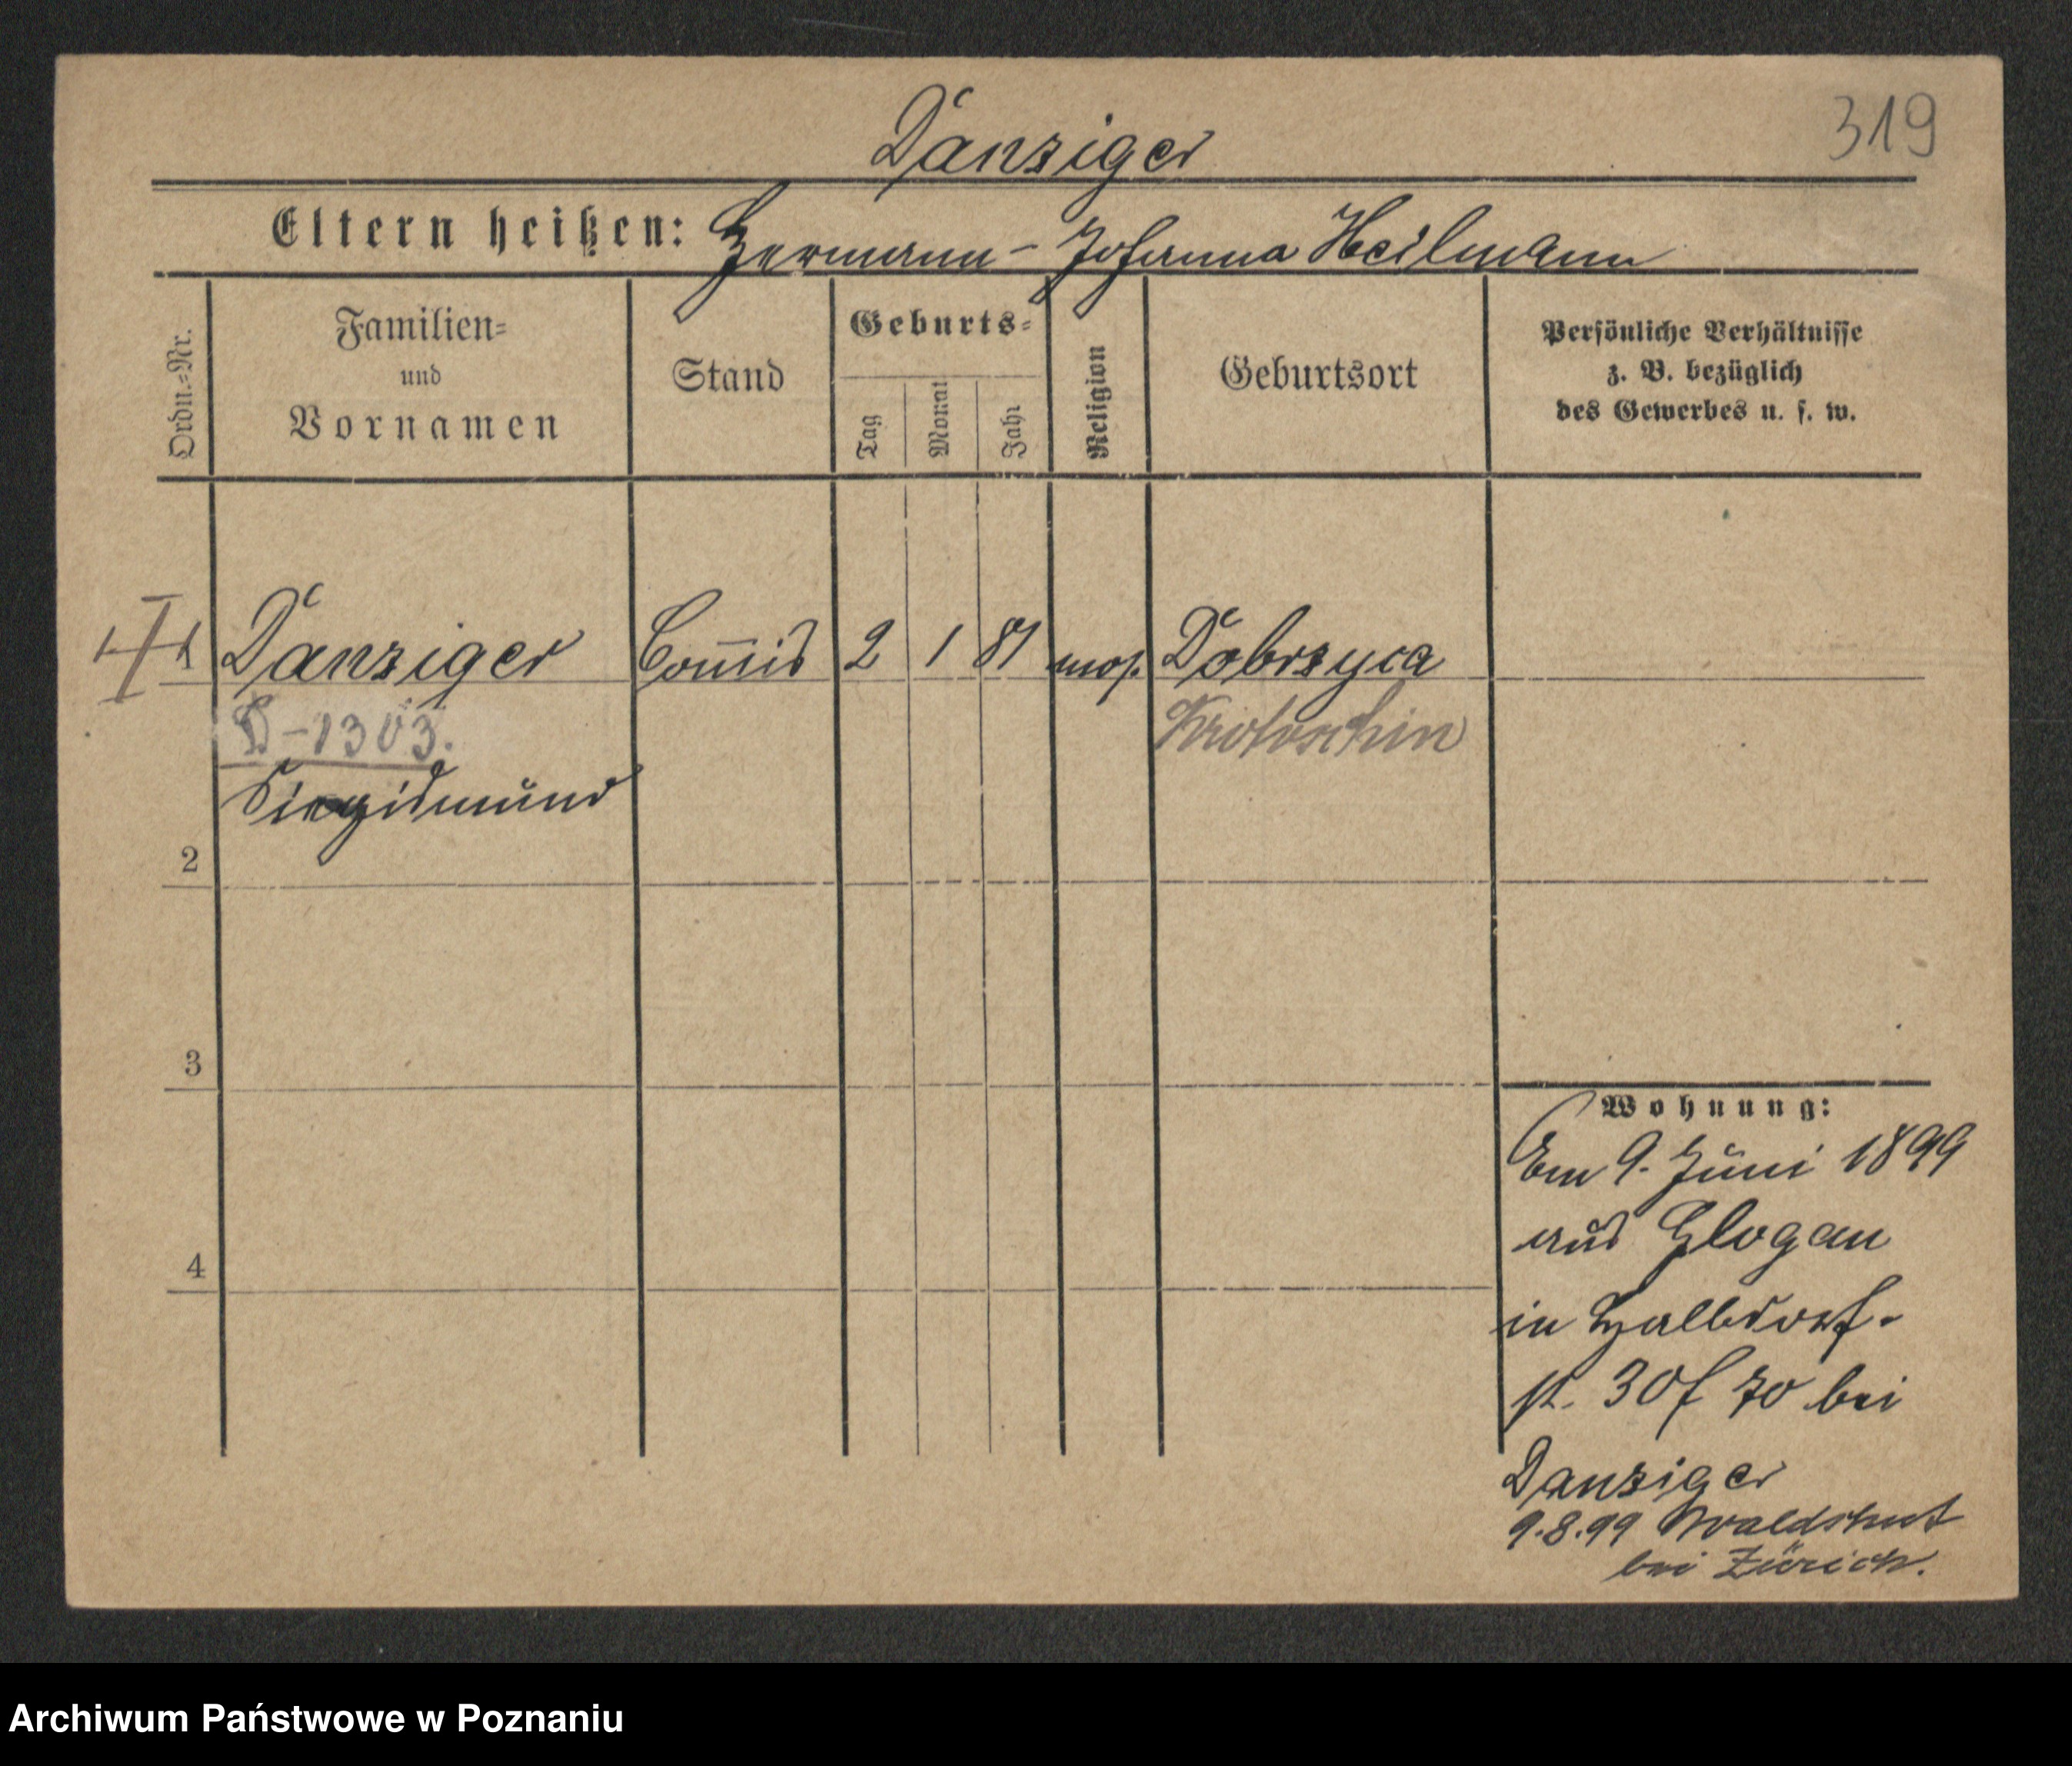 Danziger
319
Eltern heißen: Hermann - Johanna Heilmann
Ordn.=Nr.
Familien=
und
Vornamen
Stand
Geburts=
Tag
Monat
Jahr
Religion
Geburtsort
Persönliche Verhältnisse
z. B. bezüglich
des Gewerbes u. s. w.
1 Danziger Com̄is 2 1 81 mos. Dobrzyca
D-1303. Krotoschin
Siegismund
2
3
4
Wohnung:
Am 9. Juni 1899
aus Glogau
in Halbdorf-
st. 30 f 70 bei
Danziger
9.8.99 Waldshut
bei Zürich.
Archiwum Państwowe w Poznaniu